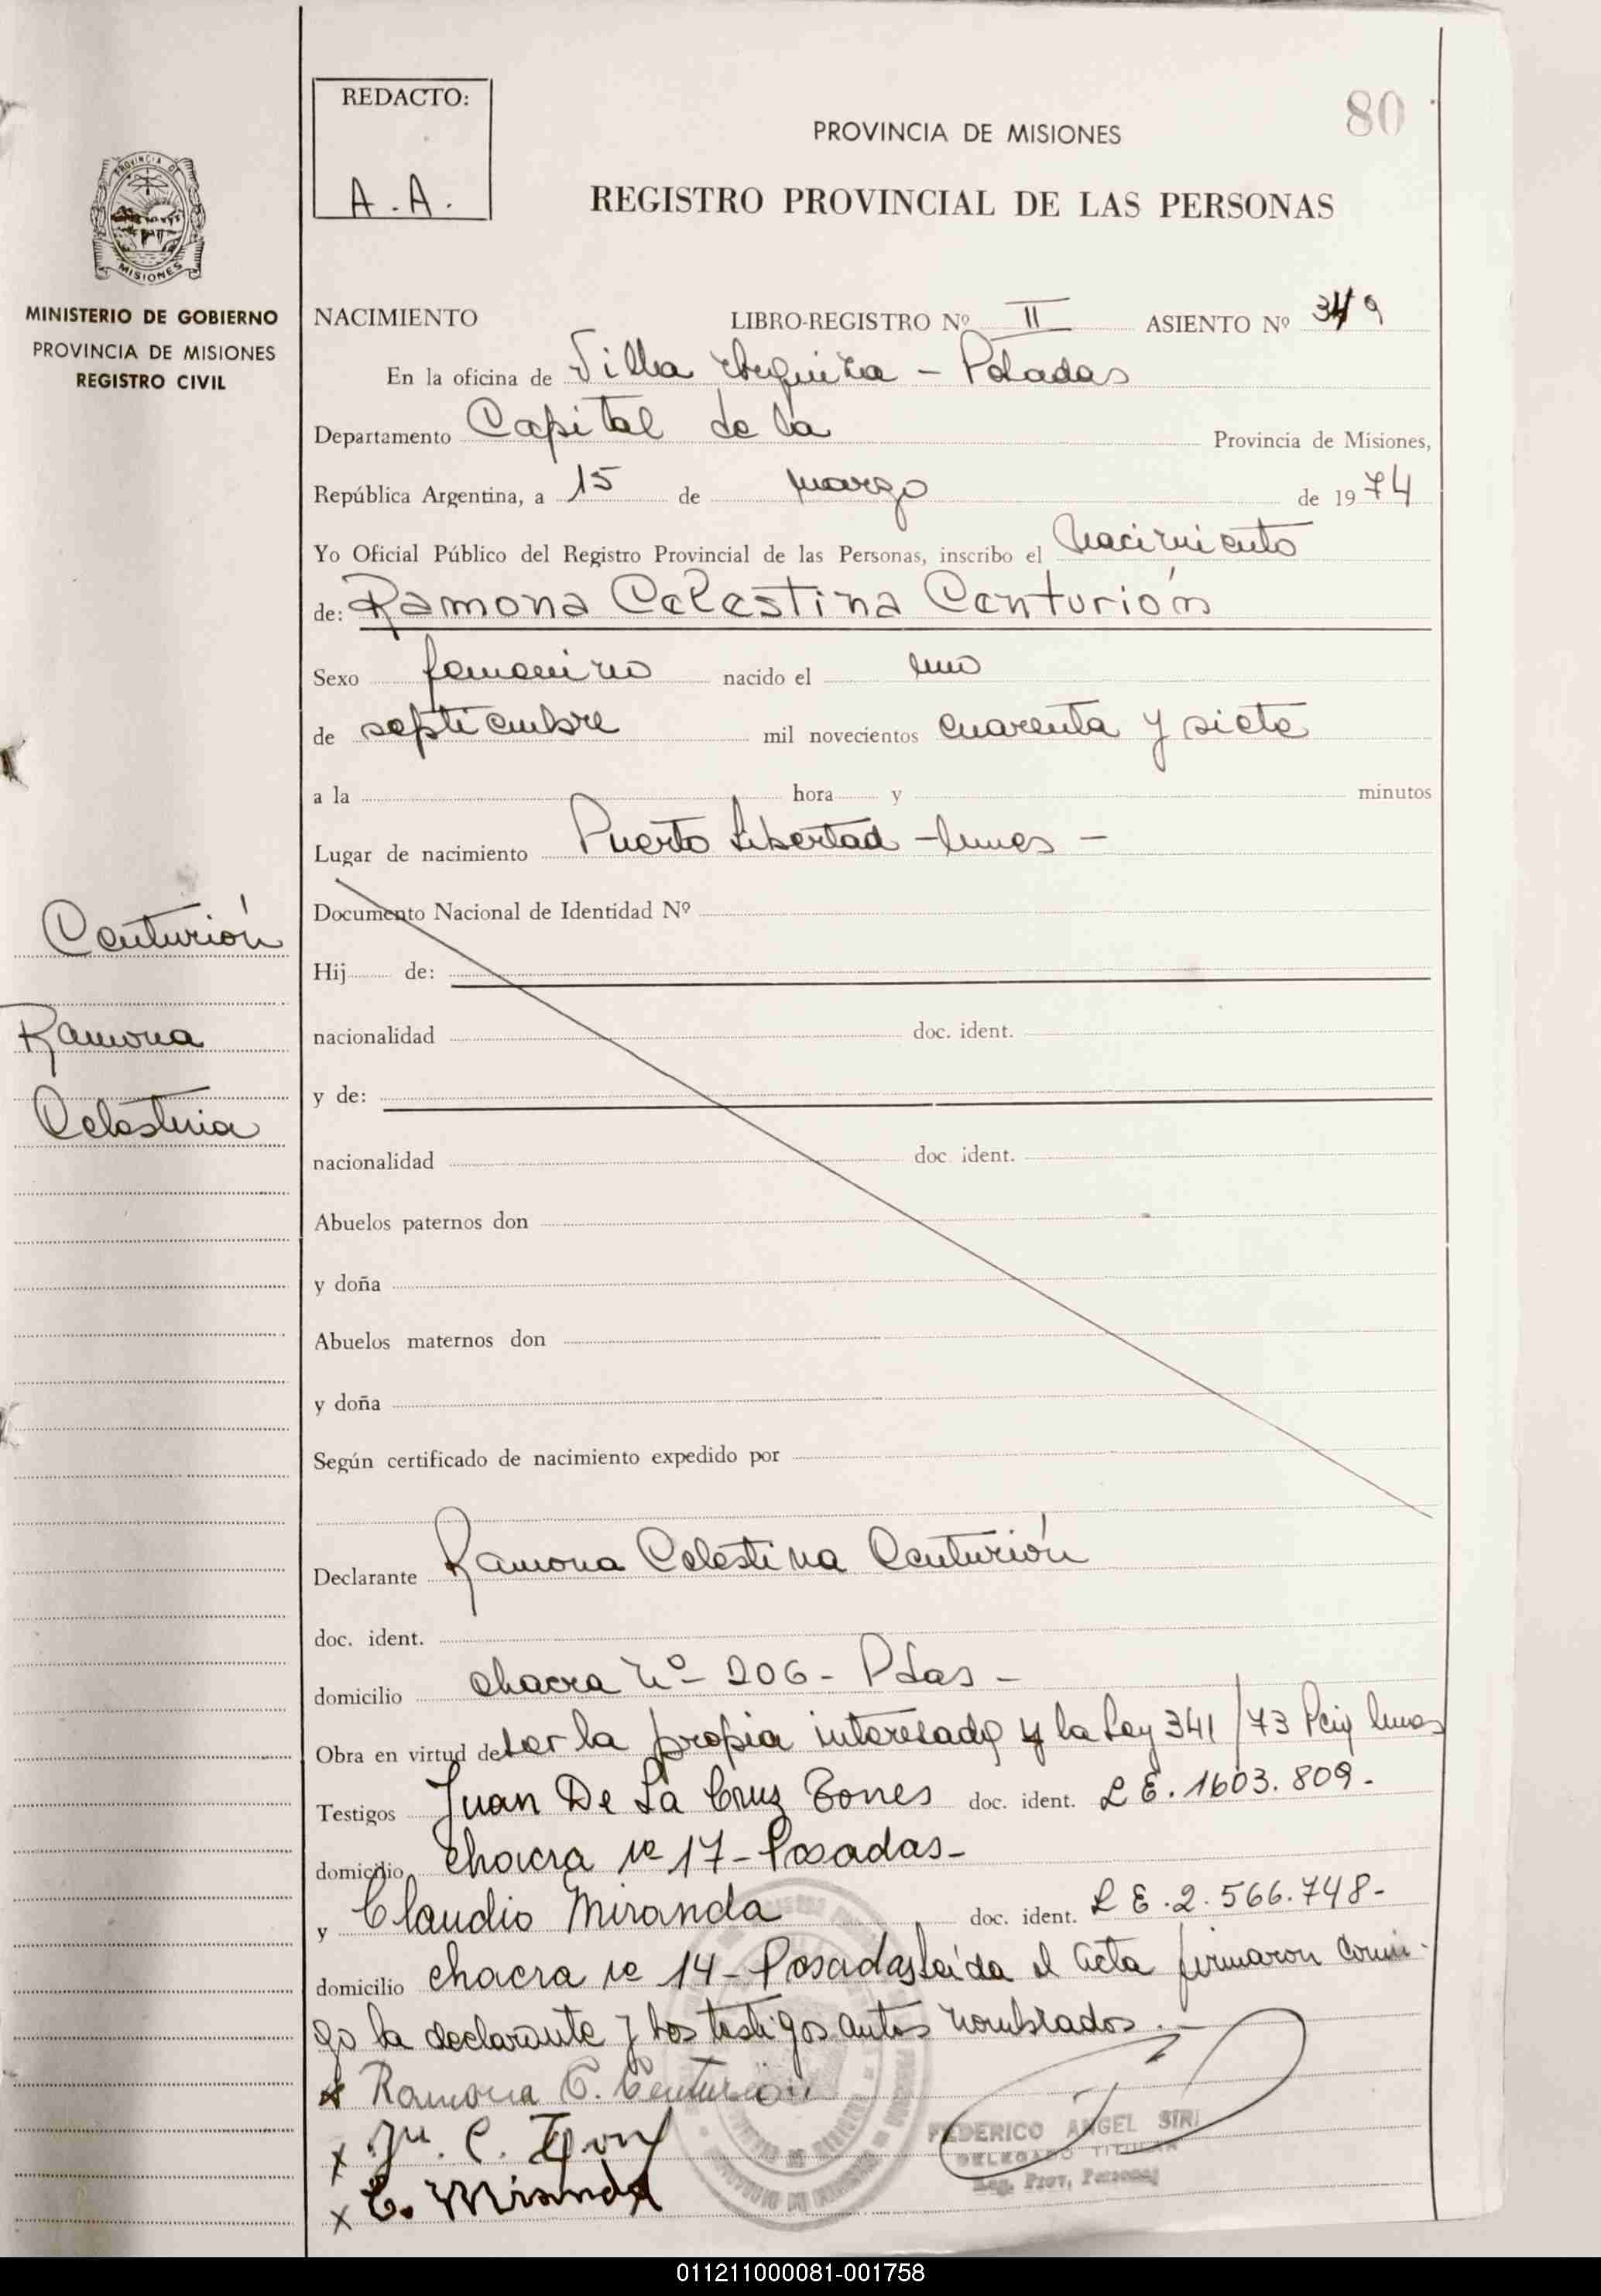 REDACTO:
A.A.
80
PROVINCIA DE MISIONES
REGISTRO PROVINCIAL DE LAS PERSONAS
PROVINCIA DE
MISIONES
MINISTERIO DE GOBIERNO
PROVINCIA DE MISIONES
REGISTRO CIVIL
NACIMIENTO LIBRO-REGISTRO Nº II ASIENTO Nº 349
En la oficina de Villa Urquiza - Posadas
Departamento Capital de la Provincia de Misiones,
República Argentina, a 15 de marzo de 1974
Yo Oficial Público del Registro Provincial de las Personas, inscribo el Nacimiento
de: Ramona Celestina Centurión
Sexo femenino nacido el uno
de septiembre mil novecientos cuarenta y siete
a la hora y minutos
Lugar de nacimiento Puerto Libertad -Mnes-
Documento Nacional de Identidad Nº
Centurión
Hij de:
Ramona
nacionalidad doc. ident.
Celestina
y de:
nacionalidad doc. ident.
Abuelos paternos don
y doña
Abuelos maternos don
y doña
Según certificado de nacimiento expedido por
Declarante Ramona Celestina Centurión
doc. ident.
domicilio chacra Nº 206 - Pdas -
Obra en virtud de ser la propia interesada y la Ley 341/73
Testigos Juan De La Cruz doc. ident. L E. 1603.809-
domicilio chacra nº 17 - Posadas -
y Claudio Miranda doc. ident. L E. 2.566.748-
domicilio chacra nº 14 - Posadas leída el acta firmaron conmi-
go la declarante y los testigos antes nombrados.-
x Ramona C. Centurión
x
x C. Miranda
FEDERICO ANGEL SIRI
DELEGADO TITULAR
Reg. Prov. Personas
011211000081-001758